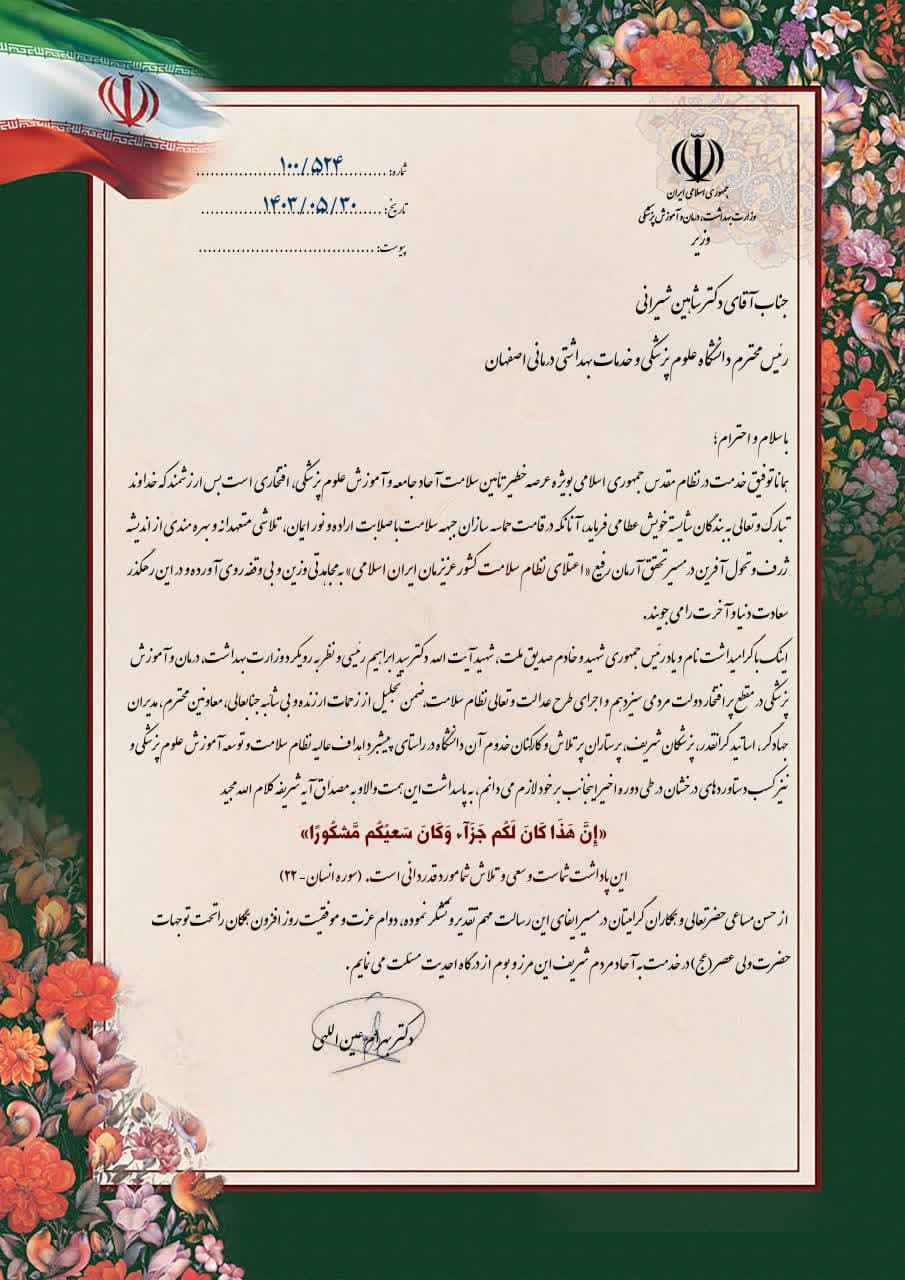 شماره: ۱۰۰/۵۲۴
تاریخ: ۱۴۰۳/۰۵/۳۰
پیوست:
جمهوری اسلامی ایران
وزارت بهداشت، درمان و آموزش پزشکی
وزیر
جناب آقای دکتر شاهین شیرانی
رئیس محترم دانشگاه علوم پزشکی و خدمات بهداشتی درمانی اصفهان
با سلام و احترام؛
همانا توفیق خدمت در نظام مقدس جمهوری اسلامی بویژه عرصه خطیر تأمین سلامت آحاد جامعه و آموزش علوم پزشکی، افتخاری است بس ارزشمند که خداوند
تبارک و تعالی به بندگان شایسته خویش عطا می فرماید، آنانکه در قامت حماسه سازان جبهه سلامت با صلابت اراده و نور ایمان، تلاشی متعهدانه و بهره مندی از اندیشه
ژرف و تحول آفرین در مسیر تحقق آرمان رفیع «اعتلای نظام سلامت کشور عزیزمان ایران اسلامی» به مجاهدتی وزین و بی وقفه روی آورده و در این رهگذر
سعادت دنیا و آخرت را می جویند.
اینک با گرامیداشت نام و یاد رئیس جمهوری شهید و خادم صدیق ملت، شهید آیت الله دکتر سید ابراهیم رئیسی و نظر به رویکرد وزارت بهداشت، درمان و آموزش
پزشکی در مقطع پر افتخار دولت مردمی سیزدهم و اجرای طرح عدالت و تعالی نظام سلامت، ضمن تجلیل از زحمات ارزنده و بی شائبه جنابعالی، معاونین محترم، مدیران
جهادگر، اساتید گرانقدر، پزشکان شریف، پرستاران پر تلاش و کارکنان خدوم آن دانشگاه در راستای پیشبرد اهداف عالیه نظام سلامت و توسعه آموزش علوم پزشکی و
نیز کسب دستاوردهای درخشان در طی دوره اخیر اینجانب بر خود لازم می دانم، به پاسداشت این همت والا و به مصداق آیه شریفه کلام الله مجید
«إِنَّ هَذَا كَانَ لَكُم جَزَآء وَكَانَ سَعيُكُم مَّشكُورًا»
این پاداشت شماست و سعی و تلاش شما مورد قدردانی است. (سوره انسان - ۲۲)
از حسن مساعی حضرتعالی و همکاران گرامیتان در مسیر ایفای این رسالت مهم تقدیر و تشکر نموده، دوام عزت و موفقیت روز افزون همگان را تحت توجهات
حضرت ولی عصر (عج) در خدمت به آحاد مردم شریف این مرز و بوم از درگاه احدیت مسئلت می نمایم.
دکتر بهرام عین اللهی